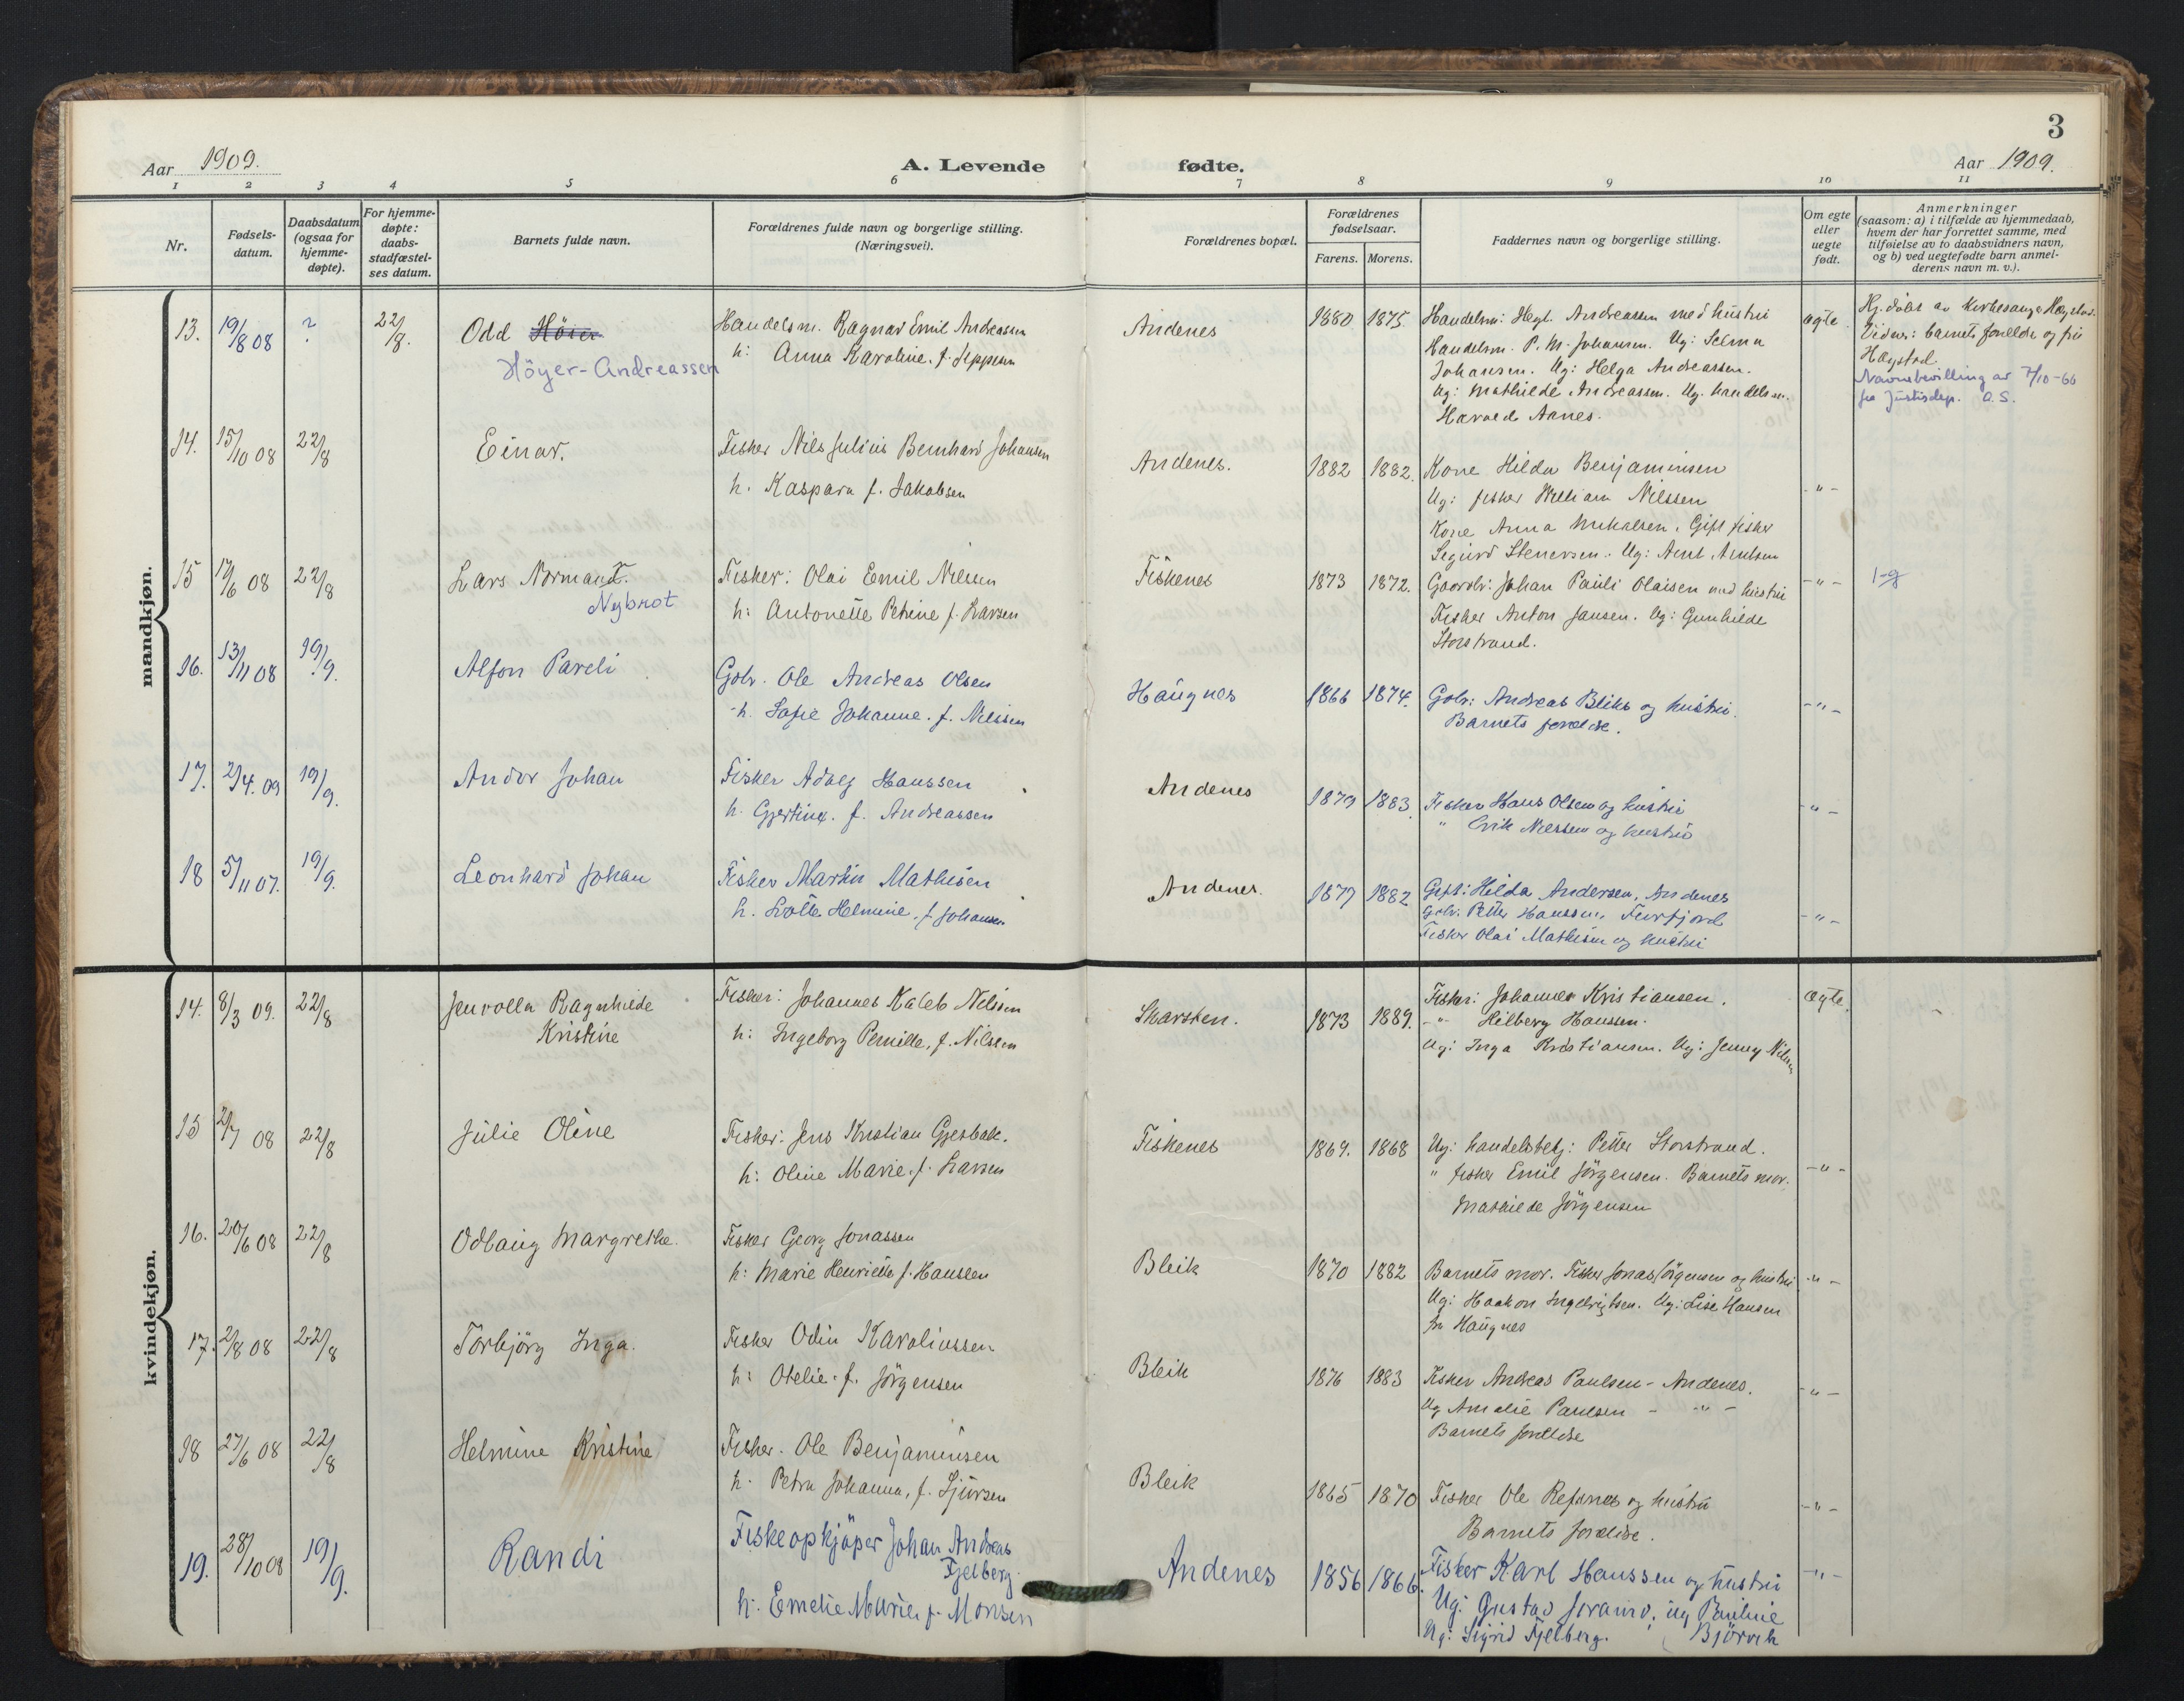 3
Aar 1909.
A. Levende fødte.
Aar 1909.
1 2 3 4 5 6 7 8 9 10 11
Nr.
Fødsels-
datum.
Daabsdatum
(ogsaa for
hjemme-
døpte).
For hjemme-
døpte:
daabs-
stadfæstel-
ses datum.
Barnets fulde navn.
Forældrenes fulde navn og borgerlige stilling.
(Næringsvei).
Forældrenes bopæl.
Forældrenes
fødselsaar.
Farens. Morens.
Faddernes navn og borgerlige stilling.
Om egte
eller
uegte
født.
Anmerkninger
(saasom: a) i tilfælde av hjemmedaab,
hvem der har forrettet samme, med
tilføielse av to daabsvidners navn,
og b) ved uegtefødte barn anmel-
derens navn m. v.).
mandkjøn.
13. 19/8 08 ? 22/8. Odd Höier
Höyer-Andreassen
Handelsm. Ragnar Emil Andreassen
h: Anna Karoline. f. Jeppesen
Andenes 1880 1875
Handelsm: Hegl. Andreassen med hustru
Handelsm. P. M. Johansen. Ug: Selma
Johansen. Ug: Helga Andreassen.
Ug: Mathilde Andreassen. Ug. handelsm.
Harald Aanes.
ægte
Hj. døbt av kirkesanger Høgstad.
Vidner: barnets foreldre og fru
Høgstad.
Navnebevilling av 7/10-66
fra Justisdep. O.S.
14. 15/10 08 22/8 Einar.
Fisker Nils Julius Bernhard Johansen
h. Kaspara f. Jakobsen
Andenes. 1882 1882.
Kone Hilda Benjaminsen
Ug: fisker William Nilssen
Kone Anna Mikalsen. Gift fisker
Sigurd Stenersen. Ug: Arnt Arntsen
-"-
15 17/6 08 22/8 Lars Normann.
Nybrot
Fisker: Olai Emil Nilsen
h: Antonette Petrine f. Larsen
Fiskenes 1873 1872.
Gaardbr: Johan Pauli Olaisen med hustru
Fisker Anton Jansen. Ug: Gunhilde
Storstrand.
-"- 1-g
16. 13/11 08 19/9. Alfon Pareli
Gbr. Ole Andreas Olsen
h. Sofie Johanne. f. Nilssen
Haugnes 1866 1874.
Gbr: Andreas Bliks og hustru.
Barnets foreldre.
-"-
17. 2/4. 09 19/9. Andor Johan
Fisker Adolf Hanssen
h. Gjertine. f. Andreassen
Andenes 1879 1883.
Fisker Hans Olsen og hustru
" Erik Nilssen og hustru
-"-
18 5/11 07. 19/9. Leonhard Johan
Fisker Martin Mathisen
h. Lotte Helmine. f. Johansen.
Andenes. 1877 1882
Gift: Hilda Andersen, Andenes
Gbr. Petter Hanssen,
Fisker Olai Mathisen og hustru
-"-
kvindekjøn.
14. 8/3 09. 22/8 Jenvolla Ragnhilde
Kristine
Fisker: Johannes Kaleb Nilssen
h: Ingeborg Pernille, f. Nilssen
Skarsten. 1873 1889.
Fisker: Johannes Kristiansen.
-"- Hilberg Hanssen.
Ug: Inga Kristiansen. Ug: Jenny Nilsen
ægte.
15 2/7 08 22/8 Julie Oline
Fisker: Jens Kristian Gjesbak.
h: Oline Marie. f. Larsen
Fiskenes 1869. 1868
Ug: handelsbetj: Petter Storstrand.
" fisker Emil Jörgensen. Barnets mor.
Mathilde Jörgensen
-"-
16. 20/6 08 22/8 Odlaug Margrethe.
Fisker Georg Jonassen
h: Marie Henriette f. Hanssen
Bleik 1870 1882
Barnets mor. Fisker Jonas Jörgensen og hustru
Ug: Haakon Ingebrigtsen. Ug: Lise Hansen
fra Haugnes
-"-
17. 2/8 08 22/8 Torbjörg Inga.
Fisker Odin Karoliussen
h: Otelie. f. Jörgensen
Bleik 1876 1883
Fisker Andreas Paulsen - Andenes.
Ug Amalie Paulsen - -"-
Barnets foreldre
-"-
18 27/6 08 22/8 Helmine Kristine
Fisker. Ole Benjaminsen
h. Petra Johanna, f. Sjursen
Bleik 1865 1870
Fisker Ole Refsnes og hustru
Barnets foreldre.
-"-
19. 28/10 08 19/9. Randi
Fiskeopkjöper Johan Andreas
Fjelberg.
h: Emelie Marie f. Monsen
Andenes 1856 1866.
Fisker Karl Hanssen og hustru
Ug: Gustav ug Pauline
Ug: Sigrid Fjelberg. Björvik
-"-